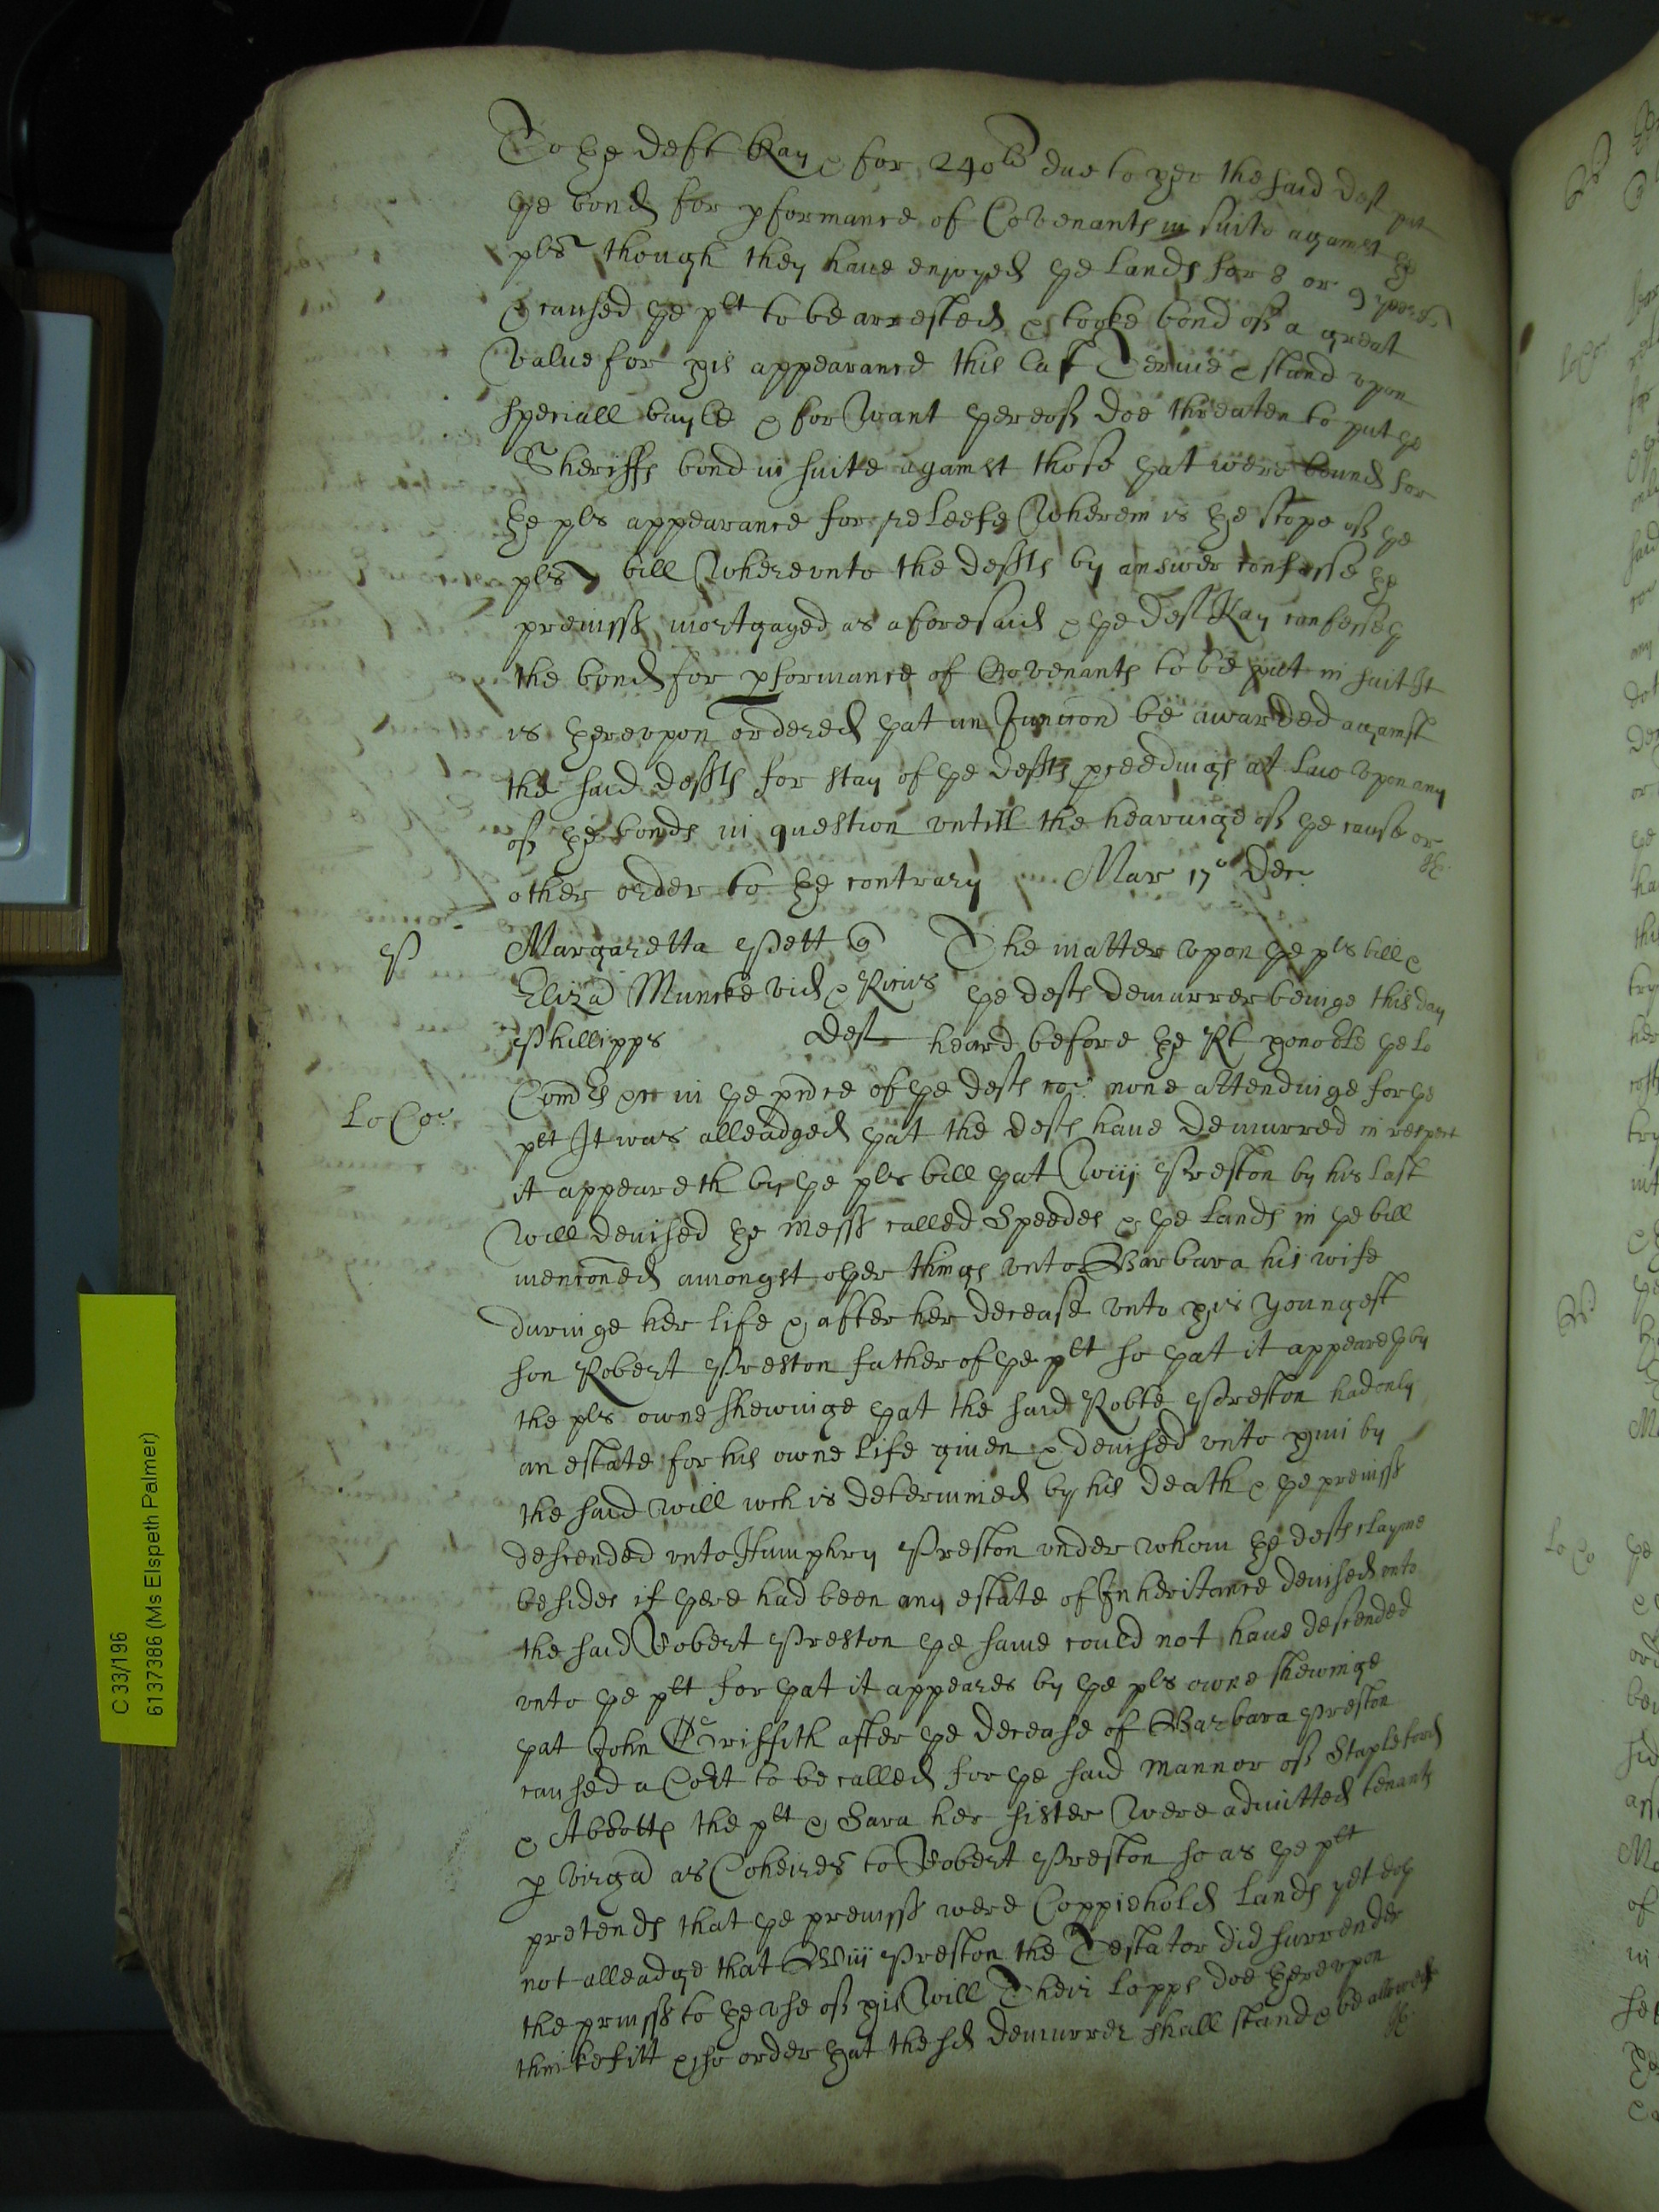 To the deft Kay & for 240ls due to her the said deft put
the bond for pformance of Covenants in suite against the
plts though they have enjoyed the lands for 8 or 9 yeeres
& caused the plt to be arrested & tooke bond of a great
value for his appearance this last Terme & stand upon
speciall bayle & for want thereof doe threaten to put the
Sheriffs bond in suite against those that were bound for
the pls appearance for releefe Wherein is the scope of the
pls bill Whereunto the defts by answer confesse the
premisss mortgaged as aforesaid & the deft Kay confesseth
the bond for pformance of Covenants to be put in suit It
is thereupon ordered that an Juncion be awarded against
the said defts for stay of the defts pceedings at Law upon any
of the bonds in question untill the hearinge of the cause or
other order to the contrary Mar 17o Dec
P
Margaretta Pett q
Eliza Muncke vid & Ricus
Phillipps Deft
The matter upon the pls bill &
the defts demurrer beinge this day
heard before the Rt honoble the Lo
Lo Co:
Comrs &c in the pnce of the defts co: none attendinge for the
plt It was alleadged that the defts have demurred in respect
it appeareth by the pls bill that Wm Preston by his last
Will devised the mess called Speedes & the lands in the bill
mencioned amongst other things unto Barbara his wife
duringe her life & after her decease unto his youngest
son Robert Preston father of the plt so that it appeareth by
the pls owne shewinge that the said Robte Preston had only
an estate for his owne life given & devised unto him by
the said will wch is determined by his death & the premisss
descended unto Humphry Preston under whom the defts clayme
besides if there had been any estate of Inheritance devised unto
the said Robert Preston the same could not have descended
unto the plt for that it appeares by the pls owne shewinge
that John Griffith after the decease of Barbara Preston
caused a Cort to be called for the said mannor of Stapleford
& Abbotts the plt & Sara her sister were admitted tenants
p virga as Coheires to Robert Preston so as the plt
pretends that the premisss were Coppiehold lands yet doth
not alleadge that Wm Preston the Testator did surrender
the prmisss to the use of his Will Their Lopps doe thereupon
thinke fitt & so order that the sd demurrer shall stand & be allowed
C 33/196
6137386 (Ms Elspeth Palmer)